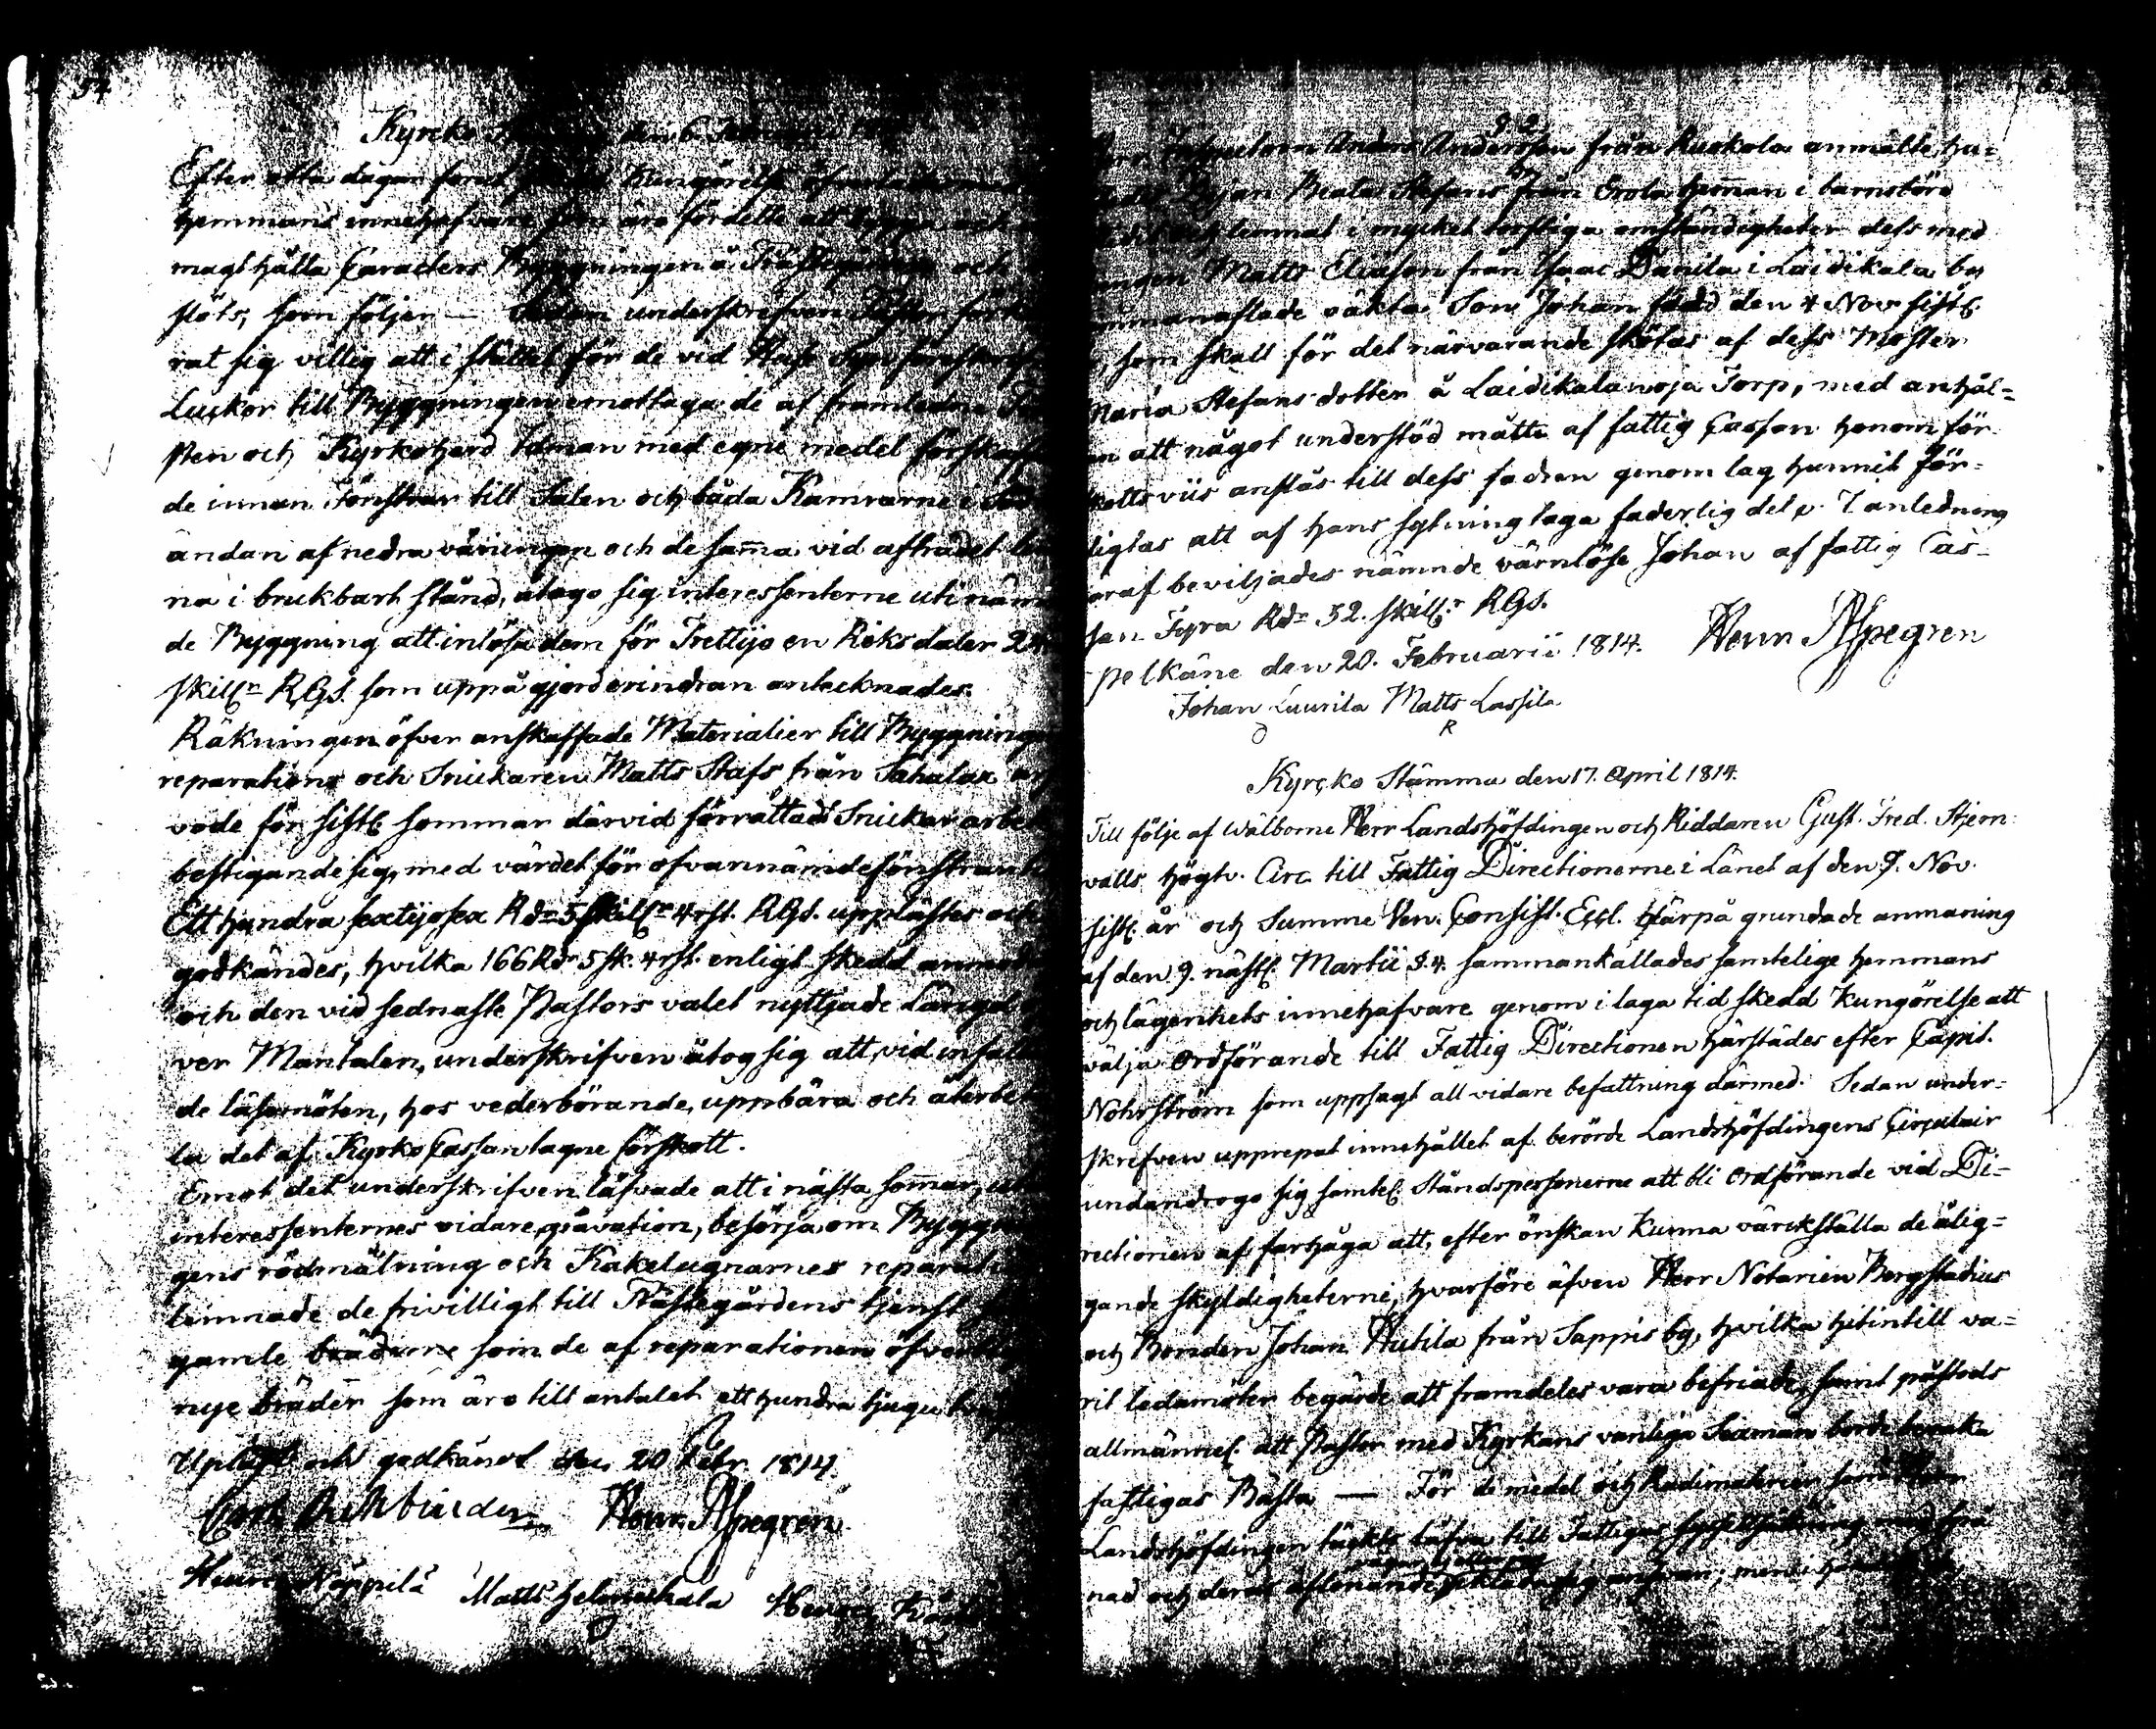 54
Kyrcko den 6
Efter otta dagar förut Kungörelse
hemmans innehafvare som äro att bygga och
magt hålla Caracters Byggningen å Prästegården och
slöts, som följer — Sedan underskrifven förkla
rat sig villig att i stället för de vid Huse Syn
Luckor till Byggningen emottaga de af framledne
sten och Kyrkoherd Idman med egne medel förskaffa
de innan Fönstrar till Salen och båda Kamrarne i
ändan af nedra våningen och de samma vid afträdet
na i brukbart stånd, åtogo sig interessenterne uti nämn
de Byggning att inlösa dem för Trettijo en Riksdaler 24
skill:r RGs. som uppå gjord erindran antecknades.
Räkningen öfver anskaffade Materialier till Byggningens
reparations och Snickaren Matts Stafs från Sahalax ar
vode för sistl. sommar därvid förrättade Snickar arbete
bestigande sig, med värdet för ofvannämde fönstrar
Ett hundra sextijosex Rd:r 5 skill:r 4 rst. RGs. upplästes och
godkändes, hvilka 166 Rd:r 5 sk. 4 rst. enligt skedd
och den vid sednaste Pastors valet nyttjade Längd
ver Mantalen, underskrifven åtog sig att, vid infallan
de läsemöten, hos vederbörande, uppbära och återbeta
la det af Kyrko Cassan tagne förskott.
Emot det underskrifven läfvade att i nästa sommar, utan
interessenternes vidare gravation, besörja om Byggnin
gens rödmålning och Kakelugnarnes reparation
lemnade de frivilligt till Prästegårdens tjenst
gamle bräderne som de af reparationen öfverblefne
nye bräder som äro till antalet ett hundra tjugu
Upläst och godkänot den 20 Febr. 1814.
Henr. Alpegren
Matts Heloneskala
§ 2.
Anders Andersson från Ruokola anmälte, hu=
Pijan Beata Stefans dr från Erola hemman i barnsbörd
lemnat i mycket torftiga omständigheter dess med
Matts Eliasson från Isaac Danila i Laidikala by
sammanaflade oäkta Son Johan född den 4 Nov. sistl.
, som skall för det närvarande skötas af dess Moster
Maria Stefans dotter å Laidikalanoja Torp, med anhål=
an att något understöd måtte af fattig Cassan honom för
skotts viis anslås till dess fadren genom lag hunnit för=
pligtas att af hans sytning taga faderlig del p. I anledning
äraf beviljades nämnde värnlöse Johan af fattig Cas-
san Fyra Rd:r 32. skill:r RGs.
pelkäne den 20. Februarii 1814. Henr Alpegren
Johan Luurila Matts Lassila
Kyrcko Stämma den 17. April 1814.
Till följe af Wälborne Herr Landshöfdingen och Riddaren Gust. Fred. Stjern
valls högtv. Circ. till Fattig Directionerne i Länet af den 9. Nov.
sistl. år och Summe Ven. Consist. Eccl. härpå grundade anmaning
af den 9. nästl. Martii §. 4. sammankallades samtelige hemmans
och lägenhets innehafvare genom i laga tid skedd Kungörelse att
välja Ordförande till Fattig Directionen härstädes efter Capit.
Nohrström som uppsagt all vidare befattning därmed. Sedan under=
skrefven upprepat innehållet af berörde Landshöfdingens Circulair
undandrogo sig samtel. Ståndspersonerne att bli Ordförande vid Di=
rectionen af farhåga att, efter önskan kunna värckställa de ålig=
gande skyldigheterne, hvarföre äfven Herr Notarien Bergstadius
och Bonden Johan Hutila från Sappis by, hvilka hitintill va=
rit ledamöter begärde att framdeles vara befriade, samt påstods
allmännel. att Pastor med Kyrkans vanliga Sexmän borde bevaka
fattigas Bästa — För de medel och Rudimaterier som Herr
Landshöfdingen täckts läfva till Fattigas sysselsättning
nad och deras